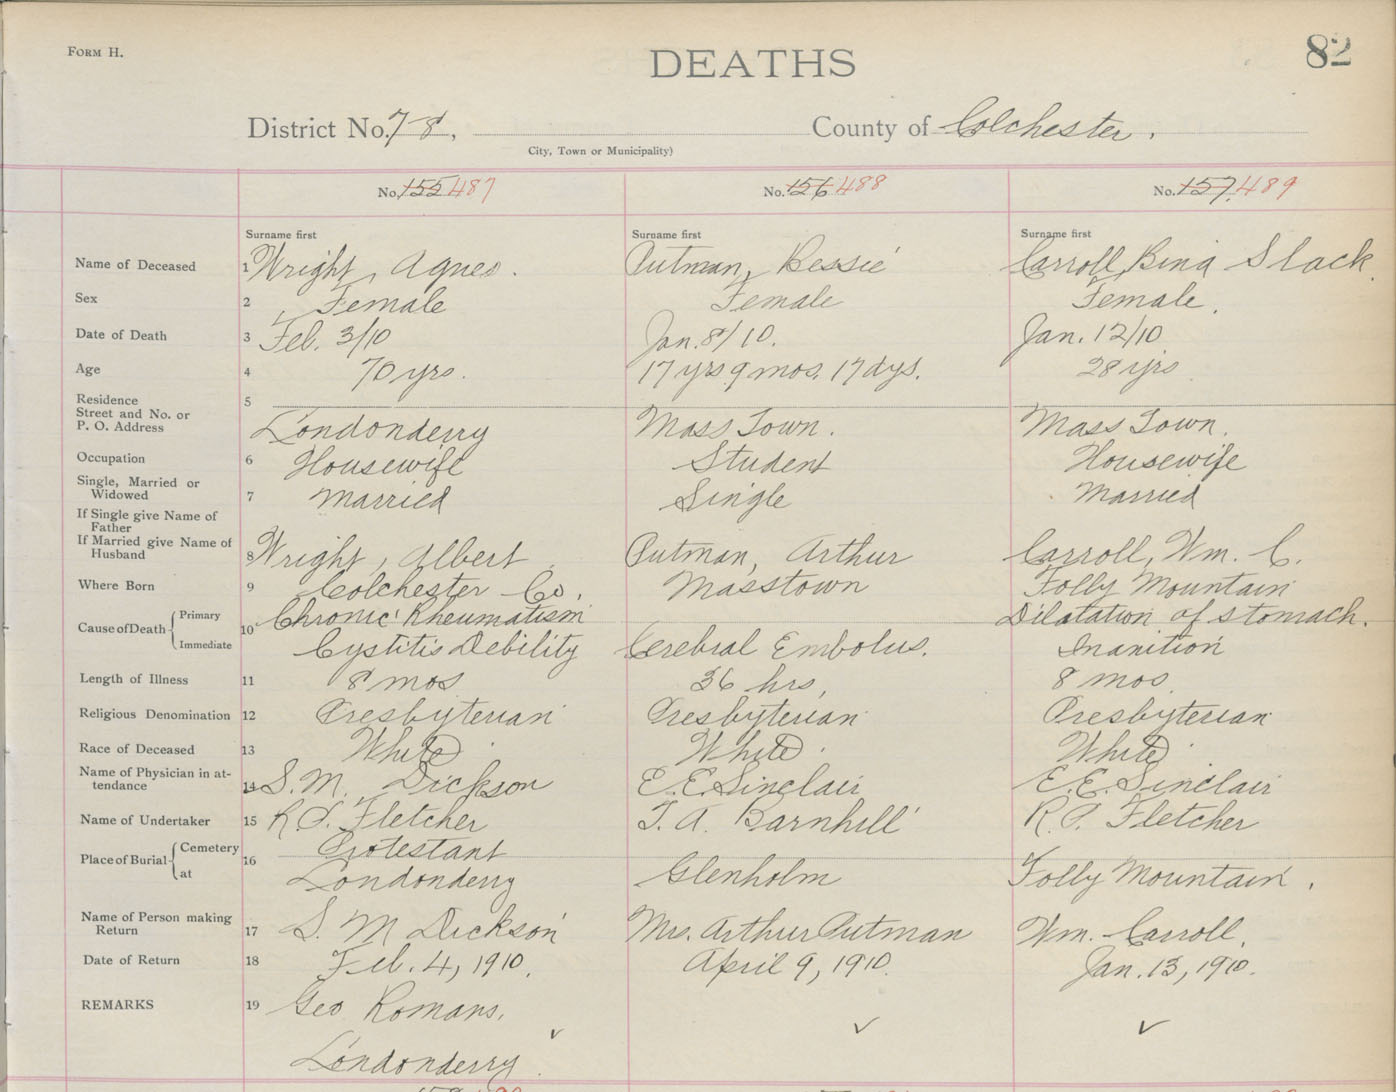 FORM H.
DEATHS
82
District No. 78, County of Colchester.
City, Town or Municipality)
No. 155 487 No. 156 488 No. 157 489
Surname first Surname first Surname first
Name of Deceased 1 Wright, Agnes. Putman, Bessie Carroll, Bina Slack.
Sex 2 Female Female Female.
Date of Death 3 Feb. 3/10 Jan. 8/10. Jan. 12/10
Age 4 70 yrs. 17 yrs 9 mos. 17 dys. 28 yrs
Residence 5
Street and No. or
P. O. Address Londonderry Mass Town. Mass Town.
Occupation 6 Housewife Student Housewife
Single, Married or
Widowed 7 Married Single Married
If Single give Name of
Father
If Married give Name of
Husband 8 Wright, Albert Putman, Arthur Carroll, Wm. C.
Where Born 9 Colchester Co. Masstown Folly Mountain
Cause of Death Primary 10 Chronic Rheumatism Dilatation of stomach.
Immediate Cystitis Debility Cerebral Embolus. Inanition
Length of Illness 11 8 mos 36 hrs, 8 mos
Religious Denomination 12 Presbyterian Presbyterian Presbyterian
Race of Deceased 13 White White White
Name of Physician in at-
tendance 14 S. M. Dickson E. E. Sinclair E. E. Sinclair
Name of Undertaker 15 R. S. Fletcher T. A. Barnhill R. S. Fletcher
Place of Burial Cemetery 16 Protestant
at Londonderry Glenholm Folly Mountain.
Name of Person making
Return 17 S. M Dickson Mrs. Arthur Putman Wm. Carroll.
Date of Return 18 Feb. 4, 1910. April 9, 1910. Jan. 13, 1910.
REMARKS 19 Geo Romans.
Londonderry